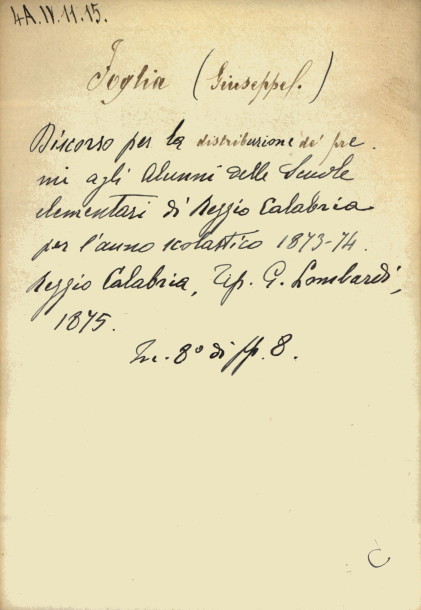 4A.IV.11.15.
Foglia (Giuseppe.)
Discorso per la distribuzione de' pre
mi agli Alunni delle Scuole
elementari di Reggio Calabria
per l'anno scolastico 1873-74.
Reggio Calabria, Tip. G. Lombardi,
1875.
In-8° di pp. 8.
C